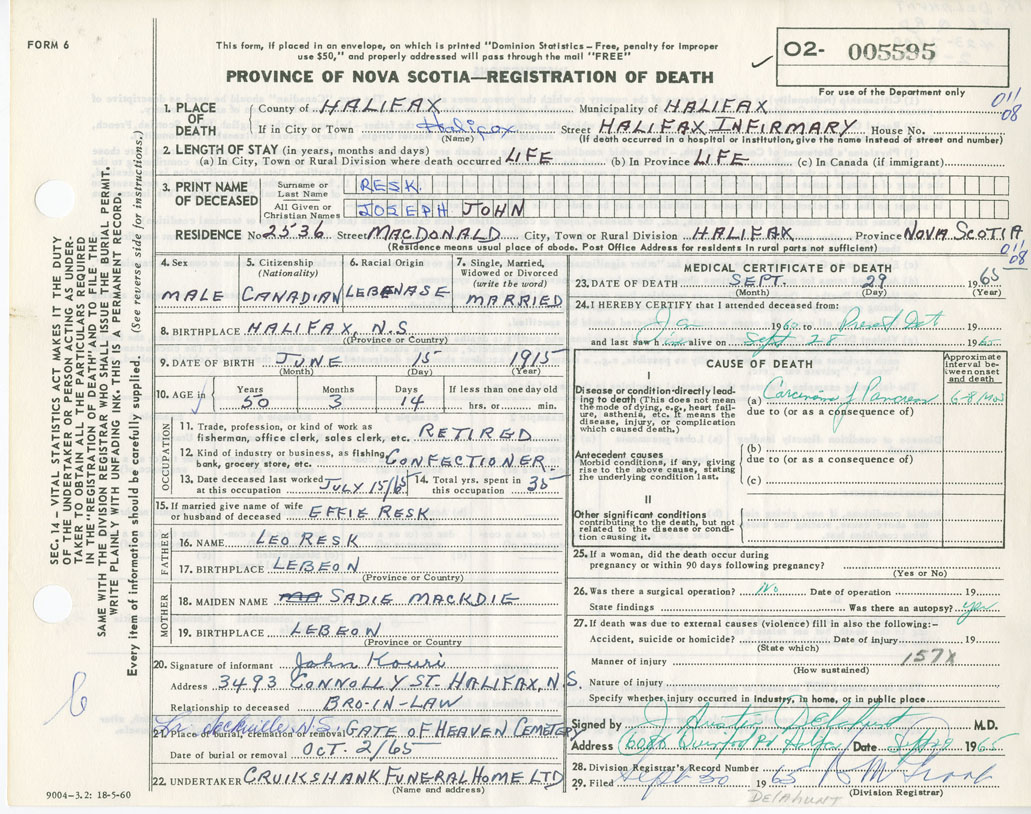 FORM 6
This form, if placed in an envelope, on which is printed "Dominion Statistics - Free, penalty for improper
use $50," and properly addressed will pass through the mail "FREE"
PROVINCE OF NOVA SCOTIA—REGISTRATION OF DEATH
02- 005595
For use of the Department only
011
08
1. PLACE OF DEATH
County of HALIFAX Municipality of HALIFAX
If in City or Town Halifax Street HALIFAX INFIRMARY House No.
(Name) (If death occurred in a hospital or institution, give the name instead of street and number)
2. LENGTH OF STAY (in years, months and days)
(a) In City, Town or Rural Division where death occurred LIFE (b) In Province LIFE (c) In Canada (if immigrant)
3. PRINT NAME OF DECEASED
Surname or Last Name RESK.
All Given or Christian Names JOSEPH JOHN
RESIDENCE No 2536 Street MACDONALD City, Town or Rural Division HALIFAX Province NOVA SCOTIA
(Residence means usual place of abode. Post Office Address for residents in rural parts not sufficient)
011
08
4. Sex MALE
5. Citizenship (Nationality) CANADIAN
6. Racial Origin LEBENASE
7. Single, Married, Widowed or Divorced (write the word) MARRIED
8. BIRTHPLACE HALIFAX, N.S.
(Province or Country)
9. DATE OF BIRTH JUNE 15 1915
(Month) (Day) (Year)
10. AGE in Years 50 Months 3 Days 14 If less than one day old hrs. or min.
OCCUPATION
11. Trade, profession, or kind of work as
fisherman, office clerk, sales clerk, etc. RETIRED
12. Kind of industry or business, as fishing,
bank, grocery store, etc. CONFECTIONER.
13. Date deceased last worked
at this occupation JULY 15/65
14. Total yrs. spent in
this occupation 35
15. If married give name of wife
or husband of deceased EFFIE RESK.
FATHER
16. NAME LEO RESK
17. BIRTHPLACE LEBEON
(Province or Country)
MOTHER
18. MAIDEN NAME SADIE MACKDIE
19. BIRTHPLACE LEBEON
(Province or Country)
20. Signature of informant John Kouri
Address 3493 CONNOLLY ST. HALIFAX, N.S.
Relationship to deceased BRO-IN-LAW
Sackville, N.S.
21. Place of burial, cremation or removal GATE OF HEAVEN CEMETERY
Date of burial or removal OCT. 2/65
22. UNDERTAKER CRUIKSHANK FUNERAL HOME LTD
(Name and address)
MEDICAL CERTIFICATE OF DEATH
23. DATE OF DEATH SEPT. 29 1965
(Month) (Day) (Year)
24. I HEREBY CERTIFY that I attended deceased from:
Jan 196 to Present Dat 19
and last saw him alive on Sept 28 1965
CAUSE OF DEATH
Approximate interval between onset and death
I
Disease or condition directly leading to death (This does not mean the mode of dying, e.g., heart failure, asthenia, etc. It means the disease, injury, or complication which caused death.)
(a) Carcinoma of Pancreas 6-8 Mos
due to (or as a consequence of)
Antecedent causes
Morbid conditions, if any, giving rise to the above cause, stating the underlying condition last.
(b)
due to (or as a consequence of)
(c)
II
Other significant conditions
contributing to the death, but not related to the disease or condition causing it.
25. If a woman, did the death occur during
pregnancy or within 90 days following pregnancy?
(Yes or No)
26. Was there a surgical operation? No Date of operation 19
State findings Was there an autopsy? yes
27. If death was due to external causes (violence) fill in also the following:-
Accident, suicide or homicide? Date of injury 19
(State which)
Manner of injury 157X
(How sustained)
Nature of injury
Specify whether injury occurred in industry, in home, or in public place
Signed by J Austin Delahunt M.D.
Address 6080 Quinpool Rd Halifax Date Sept 29 1965
28. Division Registrar's Record Number
29. Filed Sept 30 1965
(Division Registrar)
DELAHUNT
SEC. 14 - VITAL STATISTICS ACT MAKES IT THE DUTY
OF THE UNDERTAKER OR PERSON ACTING AS UNDER-
TAKER TO OBTAIN ALL THE PARTICULARS REQUIRED
IN THE "REGISTRATION OF DEATH" AND TO FILE THE
SAME WITH THE DIVISION REGISTRAR WHO SHALL ISSUE THE BURIAL PERMIT.
WRITE PLAINLY WITH UNFADING INK. THIS IS A PERMANENT RECORD.
Every item of information should be carefully supplied. (See reverse side for instructions.)
9004-3.2: 18-5-60